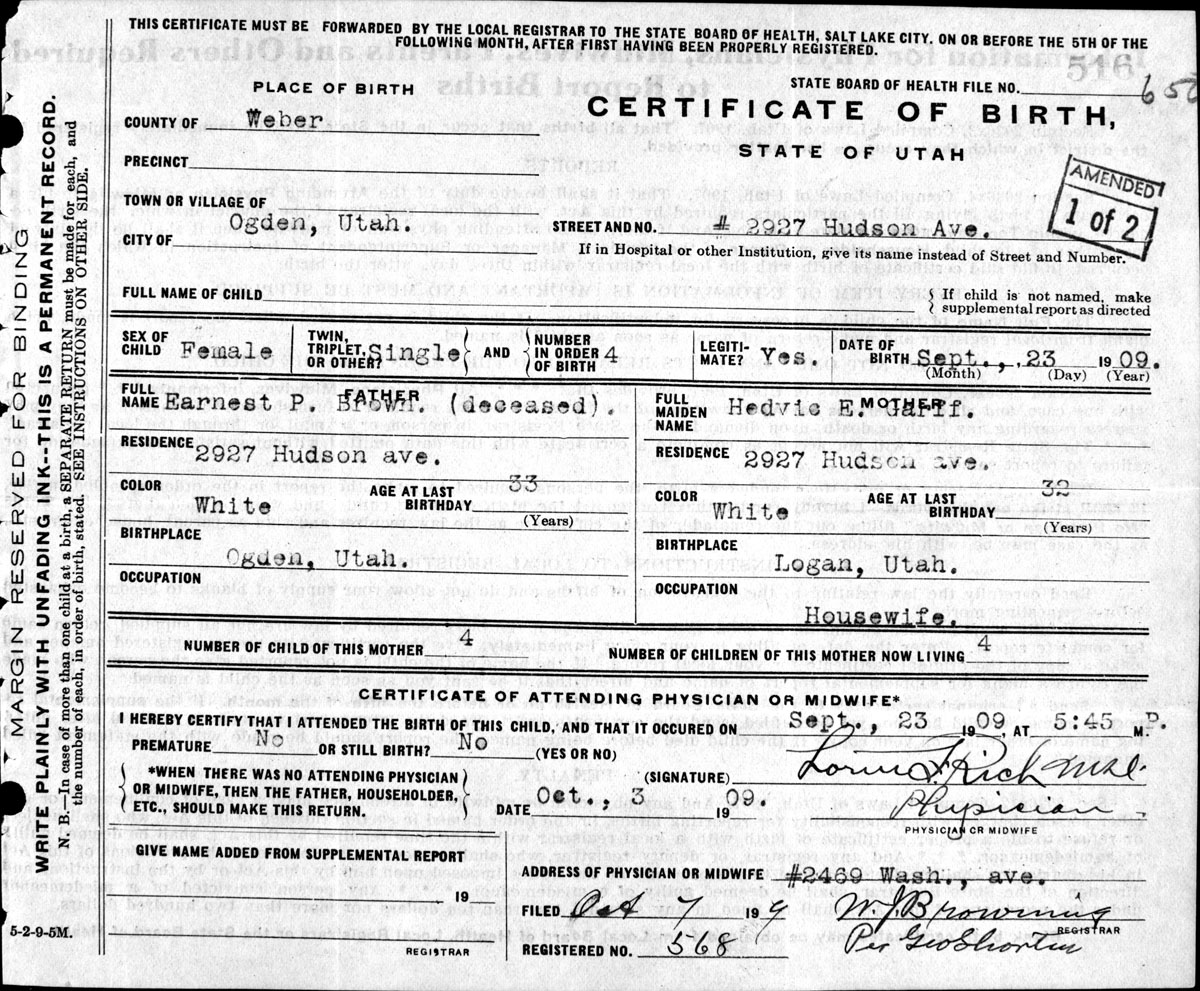 THIS CERTIFICATE MUST BE FORWARDED BY THE LOCAL REGISTRAR TO THE STATE BOARD OF HEALTH, SALT LAKE CITY. ON OR BEFORE THE 5TH OF THE
FOLLOWING MONTH, AFTER FIRST HAVING BEEN PROPERLY REGISTERED.
PLACE OF BIRTH
STATE BOARD OF HEALTH FILE NO.
COUNTY OF Weber
CERTIFICATE OF BIRTH,
STATE OF UTAH
PRECINCT
AMENDED
1 of 2
TOWN OR VILLAGE OF
Ogden, Utah.
CITY OF
STREET AND NO. # 2927 Hudson Ave.
If in Hospital or other Institution, give its name instead of Street and Number.
FULL NAME OF CHILD
If child is not named, make
supplemental report as directed
SEX OF
CHILD Female
TWIN,
TRIPLET,
OR OTHER? Single
AND
NUMBER
IN ORDER 4
OF BIRTH
LEGITI-
MATE? Yes.
DATE OF
BIRTH Sept., 23 1909.
(Month) (Day) (Year)
FATHER
FULL
NAME Earnest P. Brown (deceased).
RESIDENCE
2927 Hudson ave.
COLOR
White
AGE AT LAST
BIRTHDAY 33
(Years)
BIRTHPLACE
Ogden, Utah.
OCCUPATION
MOTHER
FULL
MAIDEN
NAME
Hedvie E. Harff.
RESIDENCE 2927 Hudson ave.
COLOR
White
AGE AT LAST
BIRTHDAY 32
(Years)
BIRTHPLACE
Logan, Utah.
OCCUPATION
Housewife.
NUMBER OF CHILD OF THIS MOTHER 4
NUMBER OF CHILDREN OF THIS MOTHER NOW LIVING 4
CERTIFICATE OF ATTENDING PHYSICIAN OR MIDWIFE*
I HEREBY CERTIFY THAT I ATTENDED THE BIRTH OF THIS CHILD, AND THAT IT OCCURED ON Sept, 23 1909, AT 5:45 P. M.
PREMATURE No OR STILL BIRTH? No (YES OR NO)
*WHEN THERE WAS NO ATTENDING PHYSICIAN
OR MIDWIFE, THEN THE FATHER, HOUSEHOLDER,
ETC., SHOULD MAKE THIS RETURN.
(SIGNATURE) Rich
DATE Oct., 3 1909.
Physician
PHYSICIAN OR MIDWIFE
GIVE NAME ADDED FROM SUPPLEMENTAL REPORT
19
REGISTRAR
ADDRESS OF PHYSICIAN OR MIDWIFE #2469 Wash., ave,
FILED Oct 7/ 199
W. J. Browning
REGISTRAR
REGISTERED NO. 568
Per Geo Shorten
5-2-9-5M.
MARGIN RESERVED FOR BINDING
WRITE PLAINLY WITH UNFADING INK--THIS IS A PERMANENT RECORD.
N. B.—In case of more than one child at a birth, a SEPARATE RETURN must be made for each, and
the number of each, in order of birth, stated. SEE INSTRUCTIONS ON OTHER SIDE.